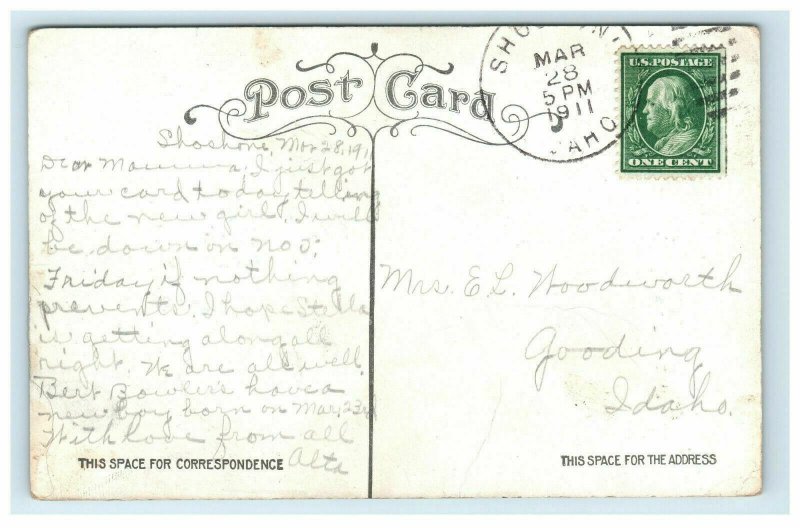 Post Card
SHOSHONE
MAR
28
5 PM
1911
IDAHO
U.S. POSTAGE
ONE CENT
Shoshone, Mar 28, 191
Dear Mamma, I just got
your card today telling
of the new girl. I will
be down on no 5,
Friday if nothing
prevents. I hope Stella
is getting along all
right. We are all well
Bert Bowler's have a
new boy born on Mar, 23rd
With love from all
Alta
THIS SPACE FOR CORRESPONDENCE
Mrs. E L. Woodworth
Gooding
Idaho.
THIS SPACE FOR THE ADDRESS